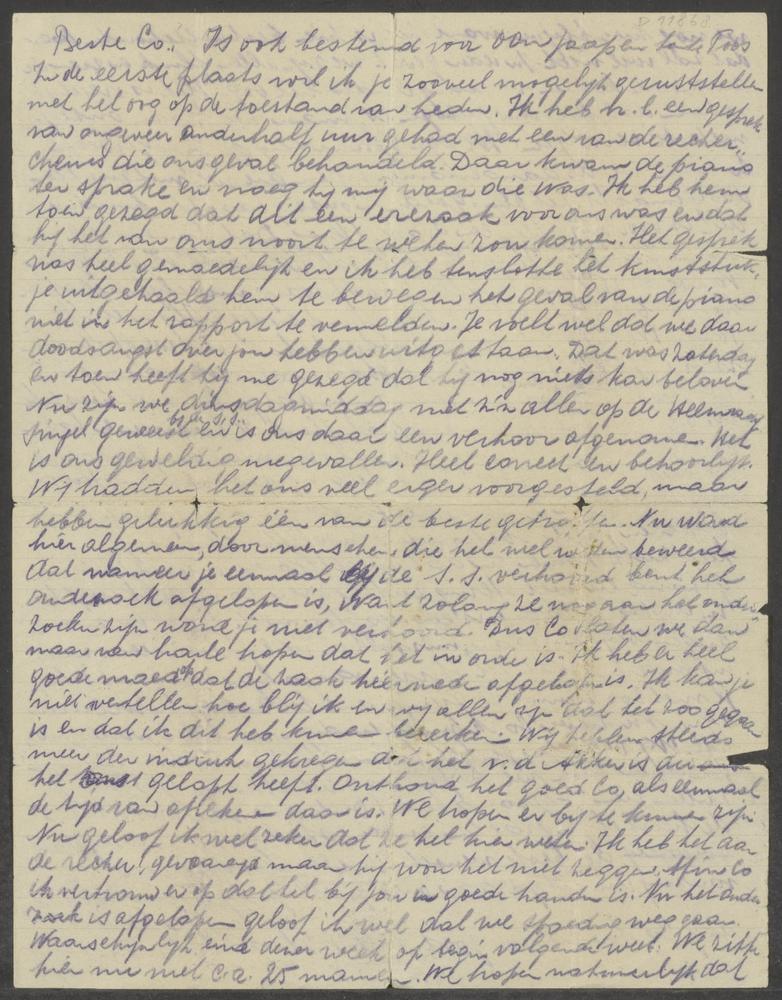 D 11868
Beste Co., Is ook bestemd voor Oom Jaap en tante Toos
In de eerste plaats wil ik je zooveel mogelijk geruststellen
met het oog op de toestand van heden. Ik heb n.l. een gesprek
van ongeveer anderhalf uur gehad met een van de recher-
cheurs die ons geval behandeld. Daar kwam de piano
ter sprake en vroeg hij mij waar die was. Ik heb hem
toen gezegd dat dit een erezaak voor ons was en dat
hij het van ons nooit te weten zou komen. Het gesprek
was heel gemoedelijk en ik heb tenslotte het kunststuk-
je uitgehaald hem te bewegen het geval van de piano
niet in het rapport te vermelden. Je voelt wel dat we daar
doodsangst over jou hebben uitgestaan. Dat was Zaterdag
en toen heeft hij me gezegd dat hij nog niets kon beloven
Nu zijn we dinsdagmiddag met z'n allen op de Heemraad
singel geweest bij de S.S. en is ons daar een verhoor afgenomen. Het
is ons geweldig meegevallen. Heel correct en behoorlijk.
Wij hadden het ons veel erger voorgesteld, maar
hebben gelukkig één van de beste getroffen. Nu word
hier algemeen, door menschen, die het wel weten beweerd
dat wanneer je eenmaal bij de S.S. verhoord bent het
onderzoek afgelopen is, want zolang ze nog aan het onder-
zoeken zijn word je niet verhoord. Dus Co laten we dan
maar van harte hopen dat het in orde is. Ik heb er heel
goede moed op dat de zaak hiermede afgelopen is. Ik kan je
niet vertellen hoe blij ik en wij allen zijn dat het zoo gegaan
is en dat ik dit heb kunnen bereiken. Wij hebben steeds
meer den indruk gekregen dat het v.d. Akker is die
het geloft heeft. Onthoud het goed Co, als eenmaal
de tijd van afrekenen daar is. We hopen er bij te kunnen zijn
Nu geloof ik wel zeker dat ze het hier weten. Ik heb het aan
de recher. gevraagd maar hij wou het niet zeggen. Co
ik vertrouw er op dat het bij jou in goede handen is. Nu het onder-
zoek is afgelopen geloof ik wel dat we spoedig weggaan.
Waarschijnlijk eind dezer week op begin volgende week. We zitten
hier nu met c.a. 25 mannen. We hopen natuurlijk dat